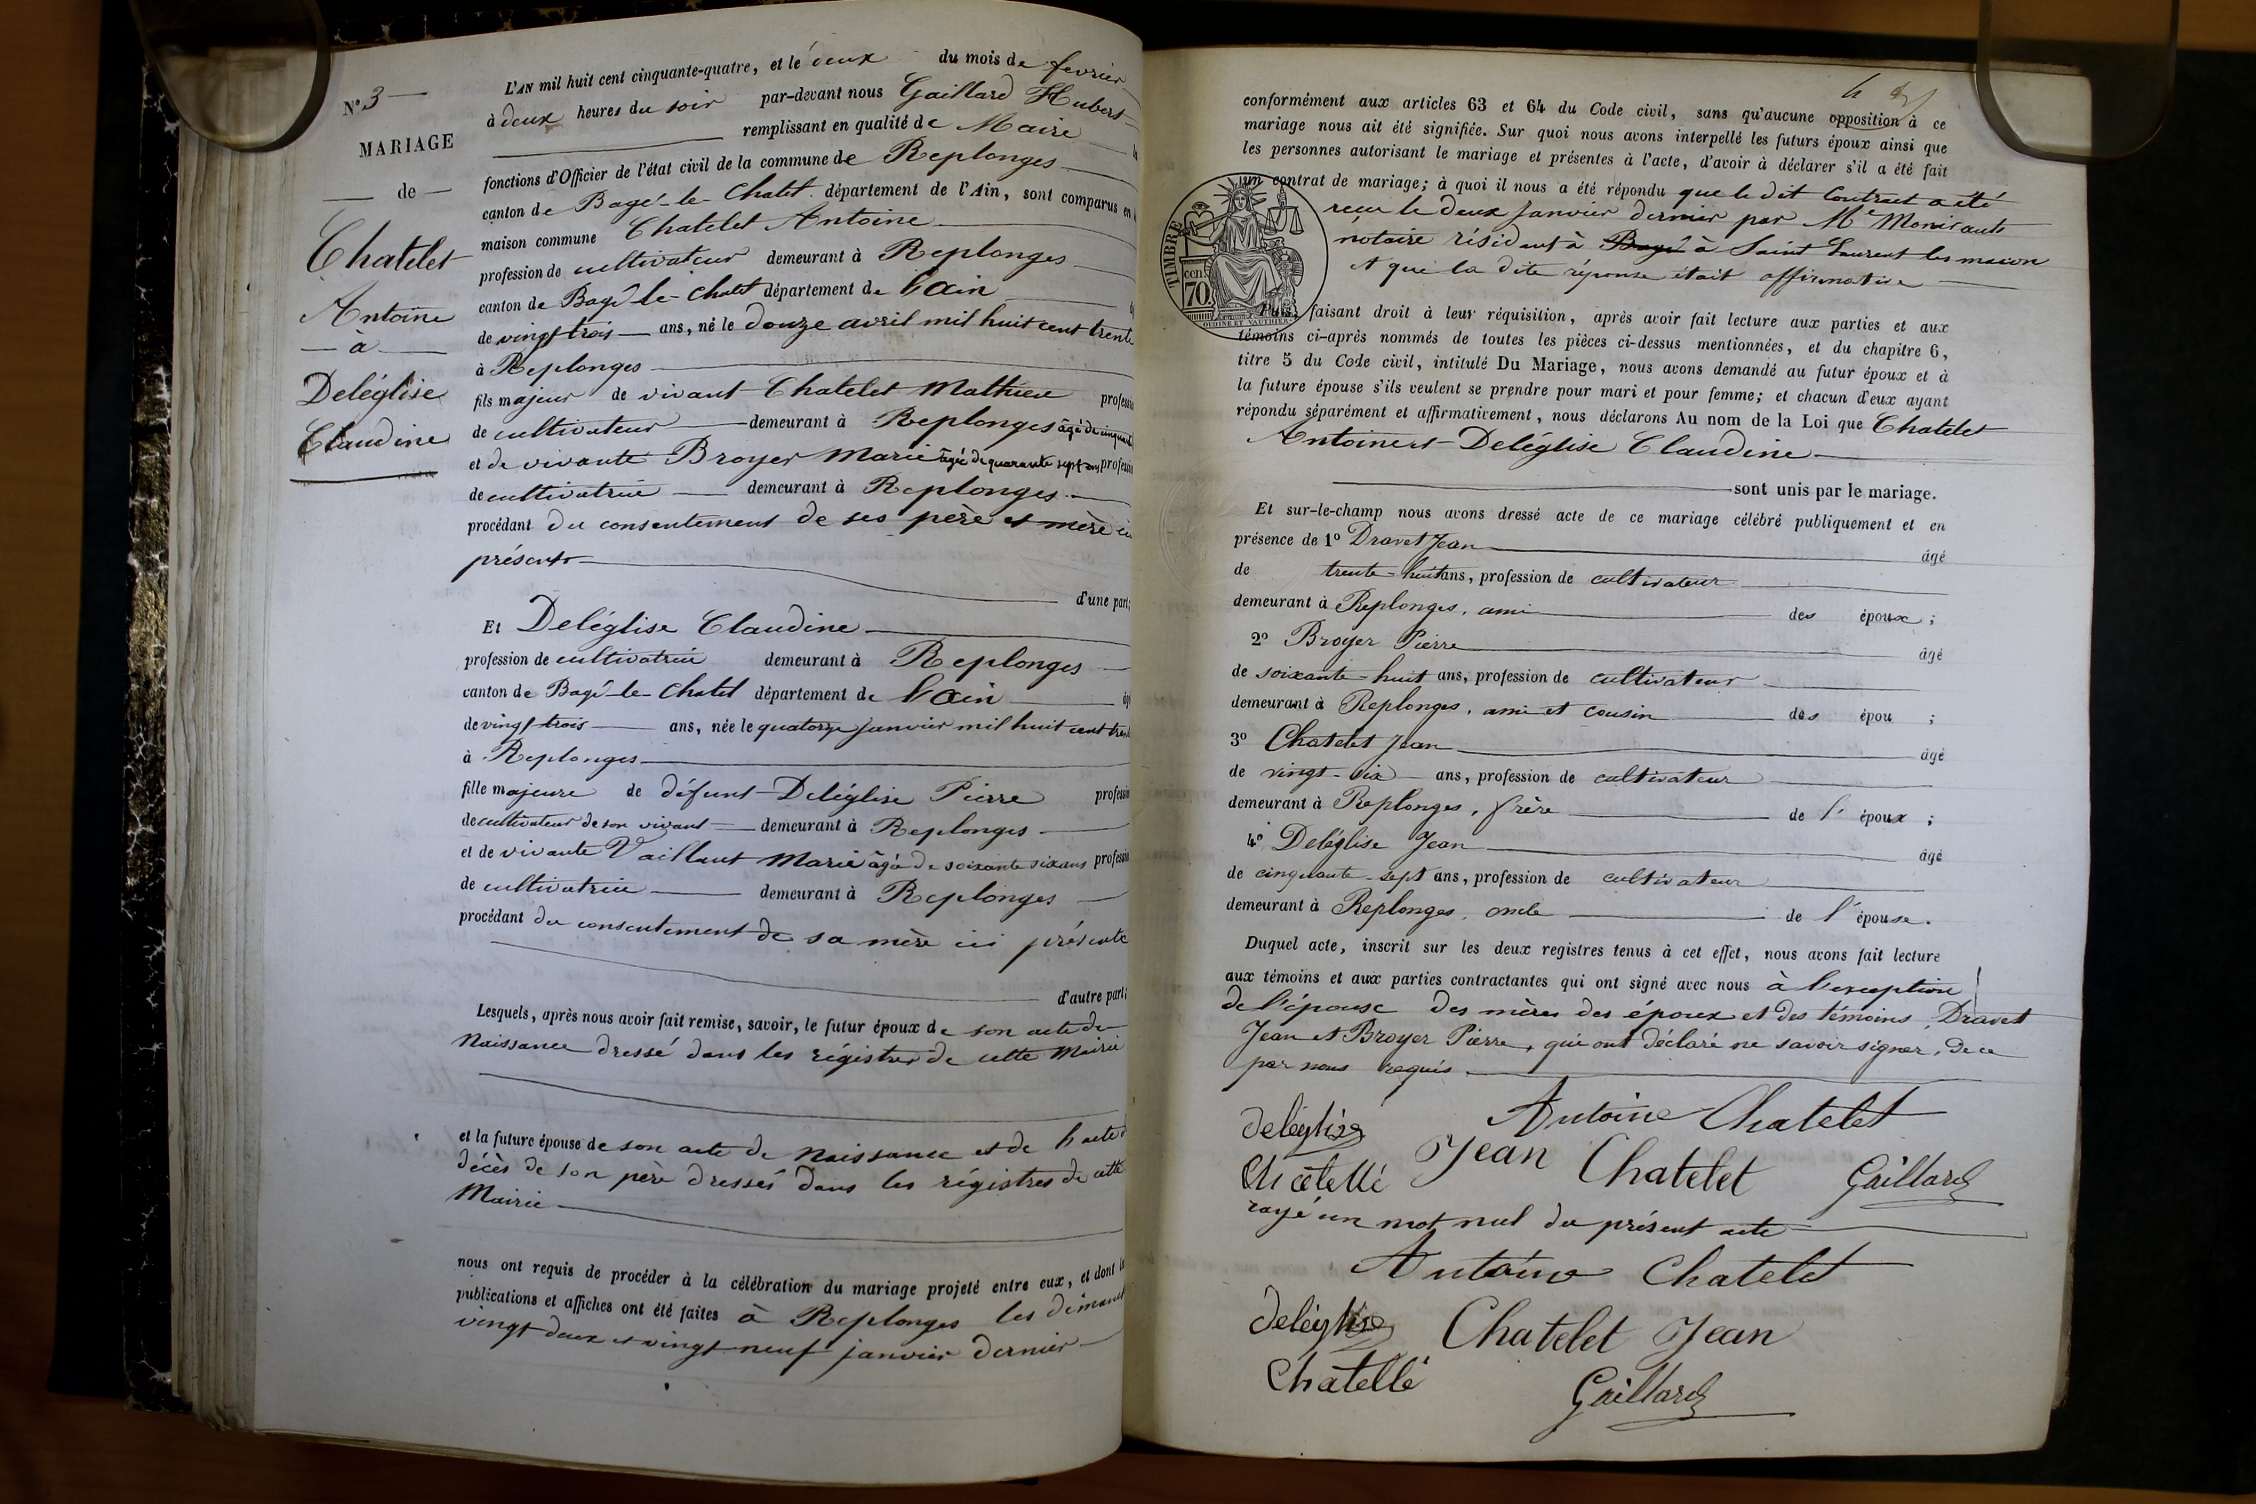 N° 3
MARIAGE
de
Chatelet
Antoine
à
Deléglise
Claudine
L'AN mil huit cent cinquante-quatre, et le deux du mois de fevrier
à deux heures du soir par-devant nous Gaillard Hubert
remplissant en qualité de Maire
fonctions d'Officier de l'état civil de la commune de Replonges
canton de Bagé-le-Chatel département de l'Ain, sont comparus en
maison commune Chatelet Antoine
profession de cultivateur demeurant à Replonges
canton de Bagé-le-Chatel département de l'ain
de vingt trois ans, né le douze avril mil huit cent trente
à Replonges
fils majeur de vivant Chatelet Mathieu profession
de cultivateur demeurant à Replonges âgé de cinquante
et de vivante Broyer Marie âgée de quarante sept ans profession
de cultivatrice demeurant à Replonges
procédant du consentement de ses père et mère ici
présents
d'une part;
Et Deléglise Claudine
profession de cultivatrice demeurant à Replonges
canton de Bagé-le-Chatel département de l'ain
de vingt trois ans, née le quatorze janvier mil huit cent trente
à Replonges
fille majeure de défunt Deléglise Pierre profession
de cultivateur de son vivant demeurant à Replonges
et de vivante Vaillant Marie âgée de soixante six ans profession
de cultivatrice demeurant à Replonges
procédant du consentement de sa mère ici présente
d'autre part;
Lesquels, après nous avoir fait remise, savoir, le futur époux de son acte de
Naissance dressé dans les régistres de cette Mairie
et la future épouse de son acte de Naissance et de l'acte de
décès de son père dressés dans les régistres de cette
Mairie
nous ont requis de procéder à la célébration du mariage projeté entre eux, et dont les
publications et affiches ont été faites à Replonges les dimanches
vingt deux et vingt neuf janvier dernier
4
conformément aux articles 63 et 64 du Code civil, sans qu'aucune opposition à ce
mariage nous ait été signifiée. Sur quoi nous avons interpellé les futurs époux ainsi que
les personnes autorisant le mariage et présentes à l'acte, d'avoir à déclarer s'il a été fait
un contrat de mariage; à quoi il nous a été répondu que le dit Contract a été
recu le deux janvier dernier par Me Monicault
notaire résidant à Bagé à Saint Laurent les macon
et que la dite réponse était affirmative
TIMBRE
cen.
70
OUDINÉ ET VAUTHIER
Puis, faisant droit à leur réquisition, après avoir fait lecture aux parties et aux
témoins ci-après nommés de toutes les pièces ci-dessus mentionnées, et du chapitre 6,
titre 5 du Code civil, intitulé Du Mariage, nous avons demandé au futur époux et à
la future épouse s'ils veulent se prendre pour mari et pour femme; et chacun d'eux ayant
répondu séparément et affirmativement, nous déclarons Au nom de la Loi que Chatelet
Antoine et Deléglise Claudine
sont unis par le mariage.
Et sur-le-champ nous avons dressé acte de ce mariage célébré publiquement et en
présence de 1° Dravet Jean âgé
de trente huit ans, profession de cultivateur
demeurant à Replonges, ami des époux;
2° Broyer Pierre âgé
de soixante-huit ans, profession de cultivateur
demeurant à Replonges, ami et cousin des épou ;
3° Chatelet Jean âgé
de vingt-six ans, profession de cultivateur
demeurant à Replonges, frère de l'époux;
4° Deléglise Jean âgé
de cinquante-sept ans, profession de cultivateur
demeurant à Replonges, oncle de l'épouse.
Duquel acte, inscrit sur les deux registres tenus à cet effet, nous avons fait lecture
aux témoins et aux parties contractantes qui ont signé avec nous à l'exception
de l'épouse des mères des époux et des témoins Dravet
Jean et Broyer Pierre, qui ont déclaré ne savoir signer, de ce
par nous requis
Antoine Chatelet
deléglize
Jean Chatelet
Chatellé
Gaillard
rayé un mot nul du présent acte
Antoine Chatelet
deléglize
Chatelet Jean
Chatellé
Gaillard